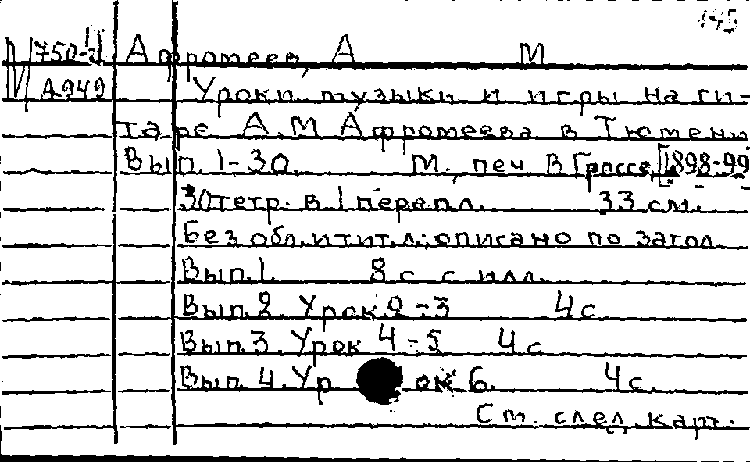 145
750-3 Афромеев, А М
А949 Уроки музыки и игры на ги-
таре А.М Афромеева в Тюмени
Вып. 1-30. М., печ В Гроссе, [1898-99
30тетр. в 1 перепл. 33 см.
Без обл. и тит. л.; описано по загол.
Вып.1. 8 с с илл.
Вып.2. Урок 2-3 4с
Вып.3. Урок 4-5 4с
Вып. 4. Урок 6. 4с.
См. след. карт.